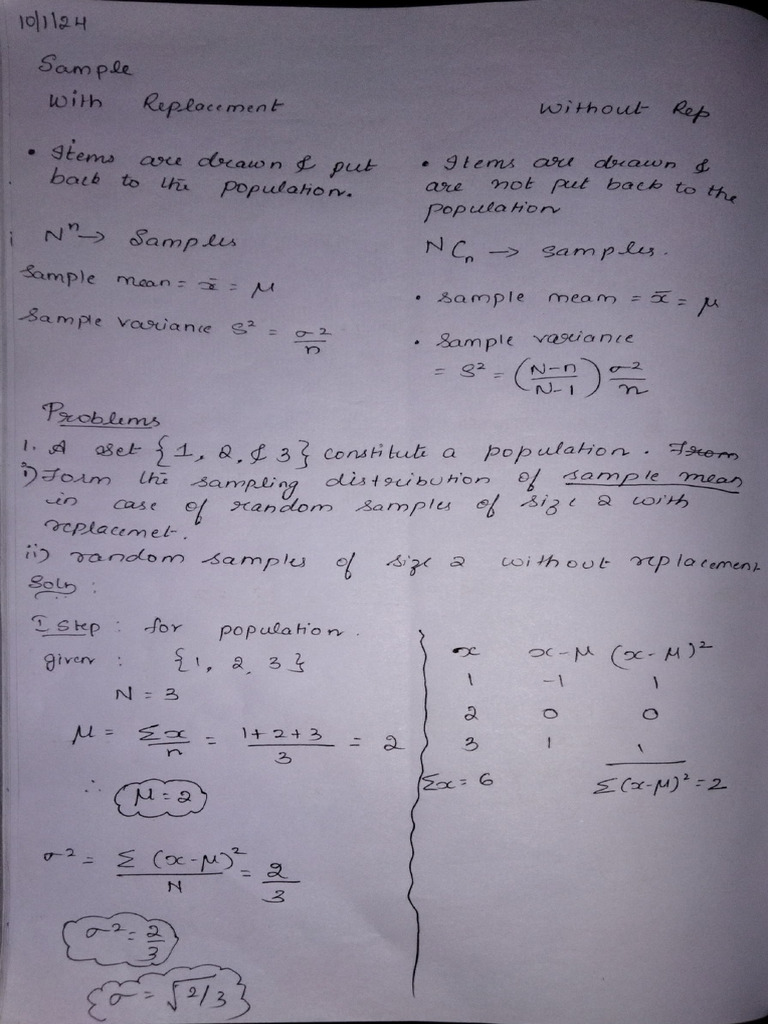 10/1/24
Sample
With Replacement
Without Rep
• Items are drawn & put
back to the population.
N^n → Samples
Sample mean = x̄ = μ
Sample variance S² = σ²/n
• Items are drawn &
are not put back to the
population
NCₙ → samples.
• sample mean = x̄ = μ
• Sample variance
= S² = ((N-n)/(N-1)) σ²/n
Problems
1. A set {1, 2, & 3} constitute a population. From
i) Form the sampling distribution of sample mean
in case of random samples of size 2 with
replacemet.
ii) random samples of size 2 without replacement
Soln :
I Step : for population.
given : {1, 2, 3}
N = 3
μ = Σx/n = (1+2+3)/3 = 2
∴ μ = 2
σ² = Σ(x-μ)²/N = 2/3
σ² = 2/3
σ = √2/3
x x-μ (x-μ)²
1 -1 1
2 0 0
3 1 1
Σx = 6 Σ(x-μ)² = 2